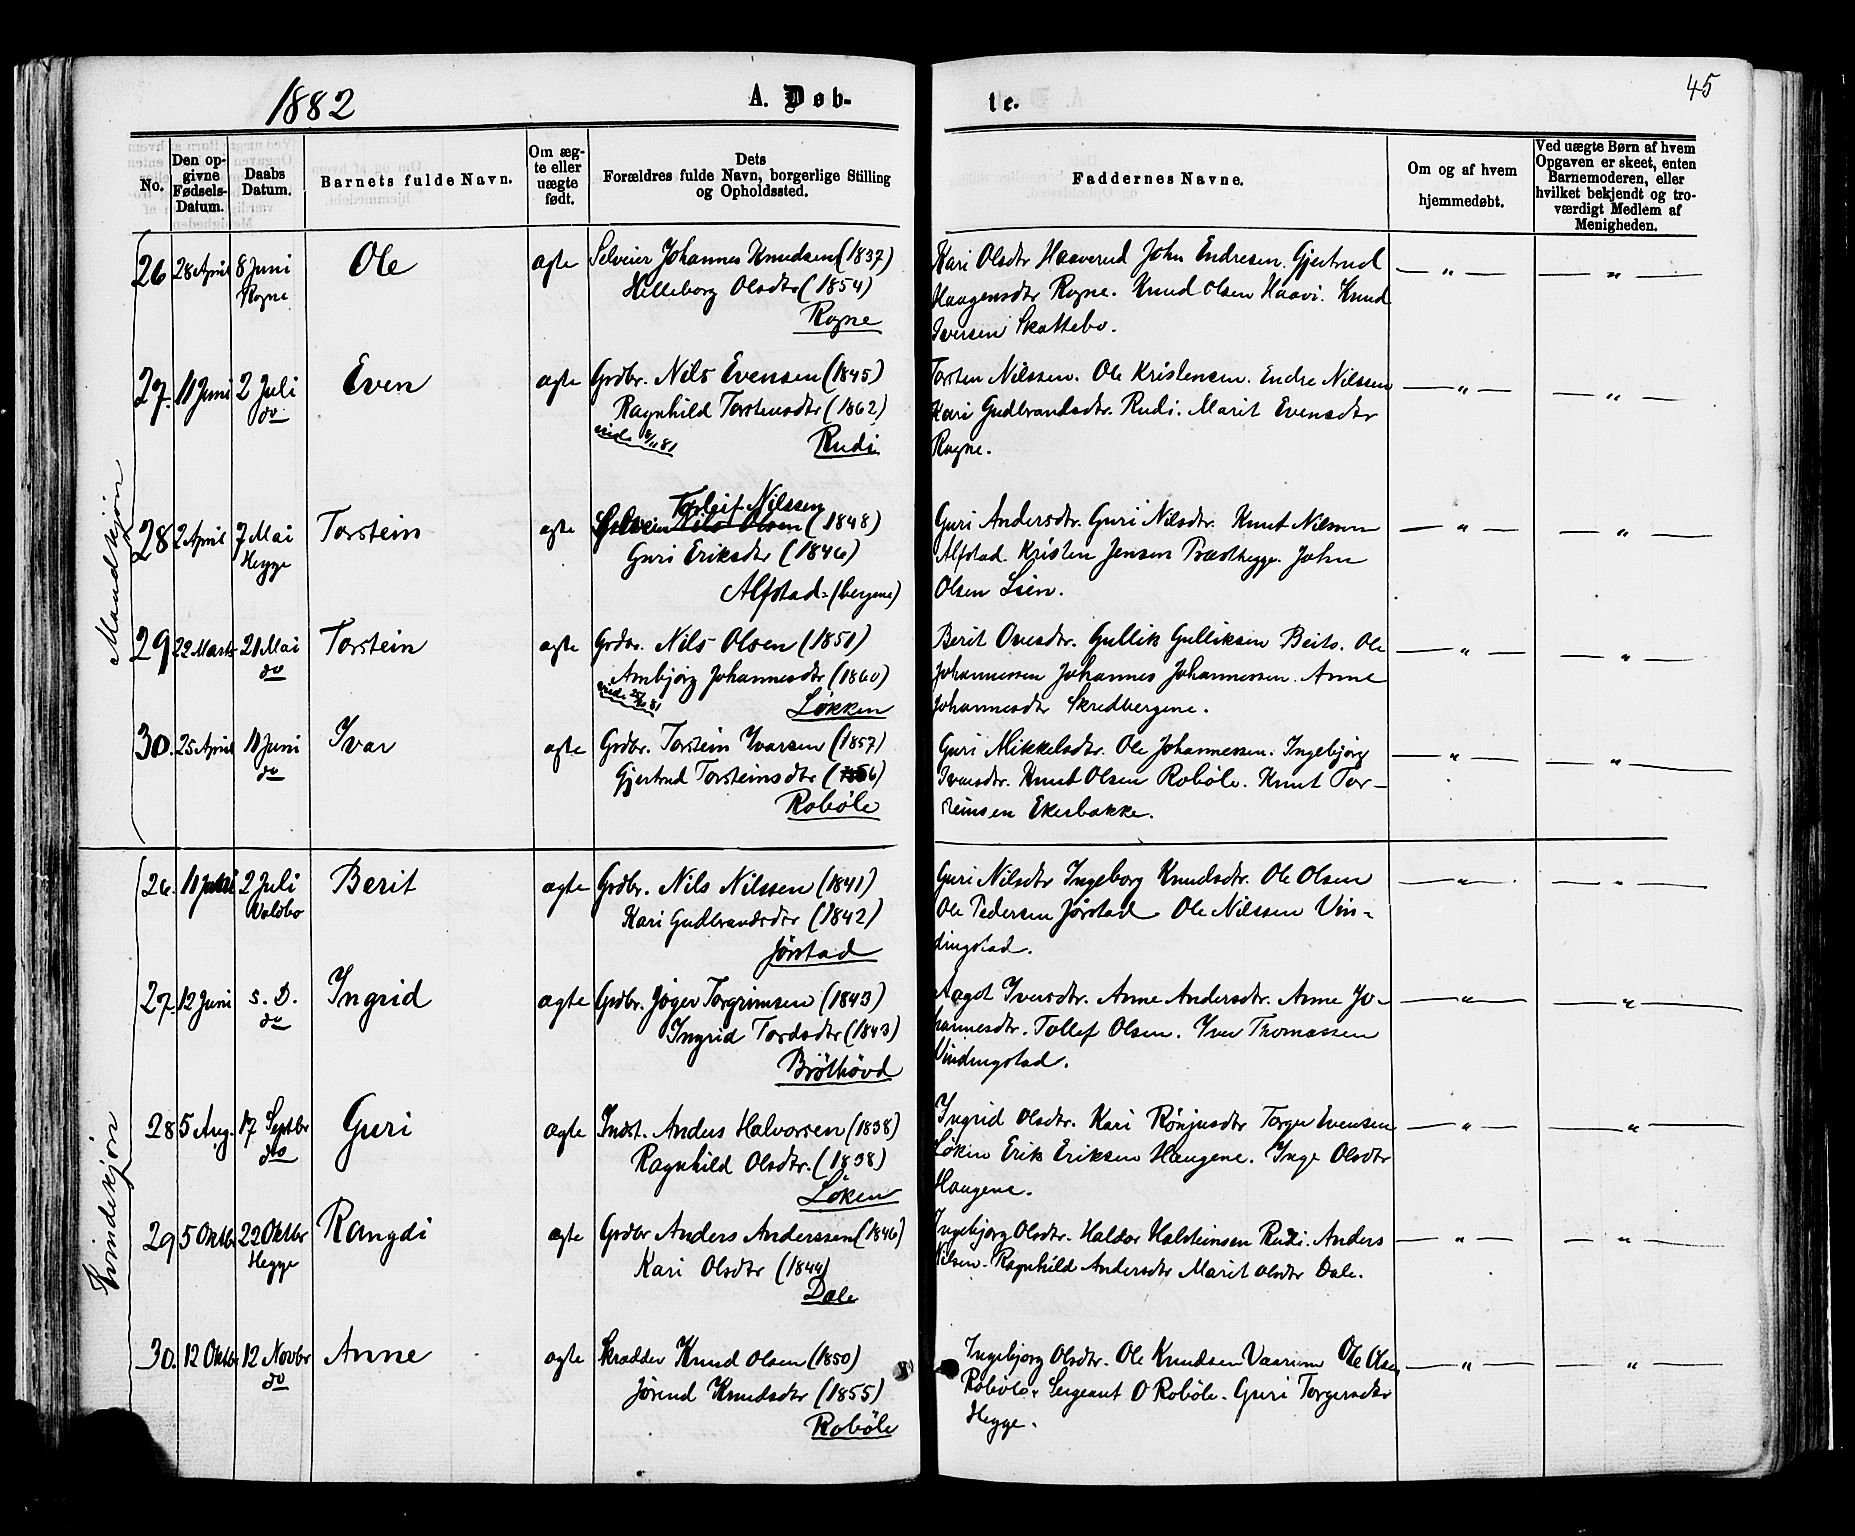 1882
A. Døb-
te.
45
No.
Den op-
givne
Fødsels-
Datum.
Daabs
Datum.
Barnets fulde Navn.
Om æg-
te eller
uægte
født.
Dets
Forældres fulde Navn, borgerlige Stilling
og Opholdssted.
Faddernes Navne.
Om og af hvem
hjemmedøbt.
Ved uægte Børn af hvem
Opgaven er skeet, enten
Barnemoderen, eller
hvilket bekjendt og tro-
værdigt Medlem af
Menigheden.
Mandkjøn
26 28 April 8 Juni Ole ægte Selveier Johannes Knudsen (1837)
Rogne Hilleborg Olsdtr (1854)
Rogne
Kari Olsdtr Haaverud John Endresen. Gjertrud
Haagensdtr Rogne. Knud Olsen Haavi. Knud
Iversen Skattebo.
— " — — " —
27. 11 Juni 2 Juli Even ægte Grdbr. Nils Evensen (1845)
do Ragnhild Torstensdtr (1862)
Rudi
Torsten Nilssen. Ole Kristensen. Endre Nilssen
Kari Gudbrandsdtr. Rudi. Marit Evensdtr
Rogne.
— " — — " —
Torleif Nilssen
28 2 April 7 Mai Torstein ægte Selveier Nils Olsen (1848)
Hegge Guri Eriksdtr (1846)
Alfstad-(bergene)
Guri Andersdtr. Guri Nilsdtr. Knut Nilssen
Alfstad. Kristen Jensen Præsthegge. John
Olsen Lien.
— " — — " —
29 22 Marts 21 Mai Torstein ægte Grdbr. Nils Olsen (1851)
do Ambjørg Johannesdtr (1860)
Løkken
Berit Ovesdtr. Gullik Gulliksen Beito. Ole
Johannessen Johannes Johannessen. Anne
Johannesdtr Skredbergene.
— " — — " —
30. 25 April 11 Juni Ivar ægte Grdbr. Torstein Ivarsen (1857)
do Gjertrud Torsteinsdtr
Robøle
Guri Mikkelsdtr. Ole Johannessen. Ingebjørg
Iversdtr. Knut Olsen Robøle. Knut Tor-
steinsen Ekerbakke.
— " — — " —
Kvindekjøn
26. 11 Juni 2 Juli Berit ægte Grdbr. Nils Nilssen (1841)
Volbo Kari Gudbrandsdtr (1842)
Jørstad
Guri Nilsdtr Ingeborg Knudsdtr. Ole Olsen
Ole Pedersen Jørstad. Ole Nilssen Vin-
dingstad.
— " — — " —
27 12 Juni s. D. Ingrid ægte Grdbr. Jøger Torgrimsen (1843)
do Ingrid Tordsdtr (1843)
Brøthøvd
Aagot Iversdtr. Anne Andersdtr. Anne Jo-
hannesdtr. Tollef Olsen. Iver Thomassen
Vindingstad.
— " — — " —
28 5 Aug. 17 Septbr Guri ægte Indst. Anders Halvorsen (1838)
do Ragnhild Olsdtr. (1838)
Løken
Ingrid Olsdtr. Kari Rønjusdtr Torger Evensen
Løken Erik Eriksen Haugene. Inge Olsdtr
Haugene.
— " — — " —
29 5 Oktbr 22 Oktbr Rangdi ægte Grdbr Anders Anderssen (1846)
Hegge Kari Olsdtr (1844)
Dale
Ingebjørg Olsdtr. Haldor Halsteinsen Rudi. Anders
Nilsen. Ragnhild Andersdtr Marit Olsdtr Dale.
— " — — " —
30. 12 Oktbr 12 Novbr Anne ægte Skrædder Knud Olsen (1850)
do Jørend Knudsdtr (1855)
Robøle
Ingebjørg Olsdtr. Ole Knudsen Vaarum Ole Olsen
Robøle. Sergeant O Robøle. Guri Torgersdtr
Hegge.
— " — — " —